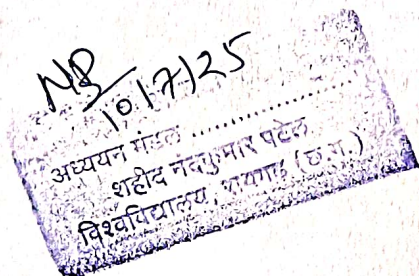 10/7/25
अध्ययन मंडल ....................
शहीद नंदकुमार पटेल
विश्वविद्यालय, रायगढ़ (छ.ग.)